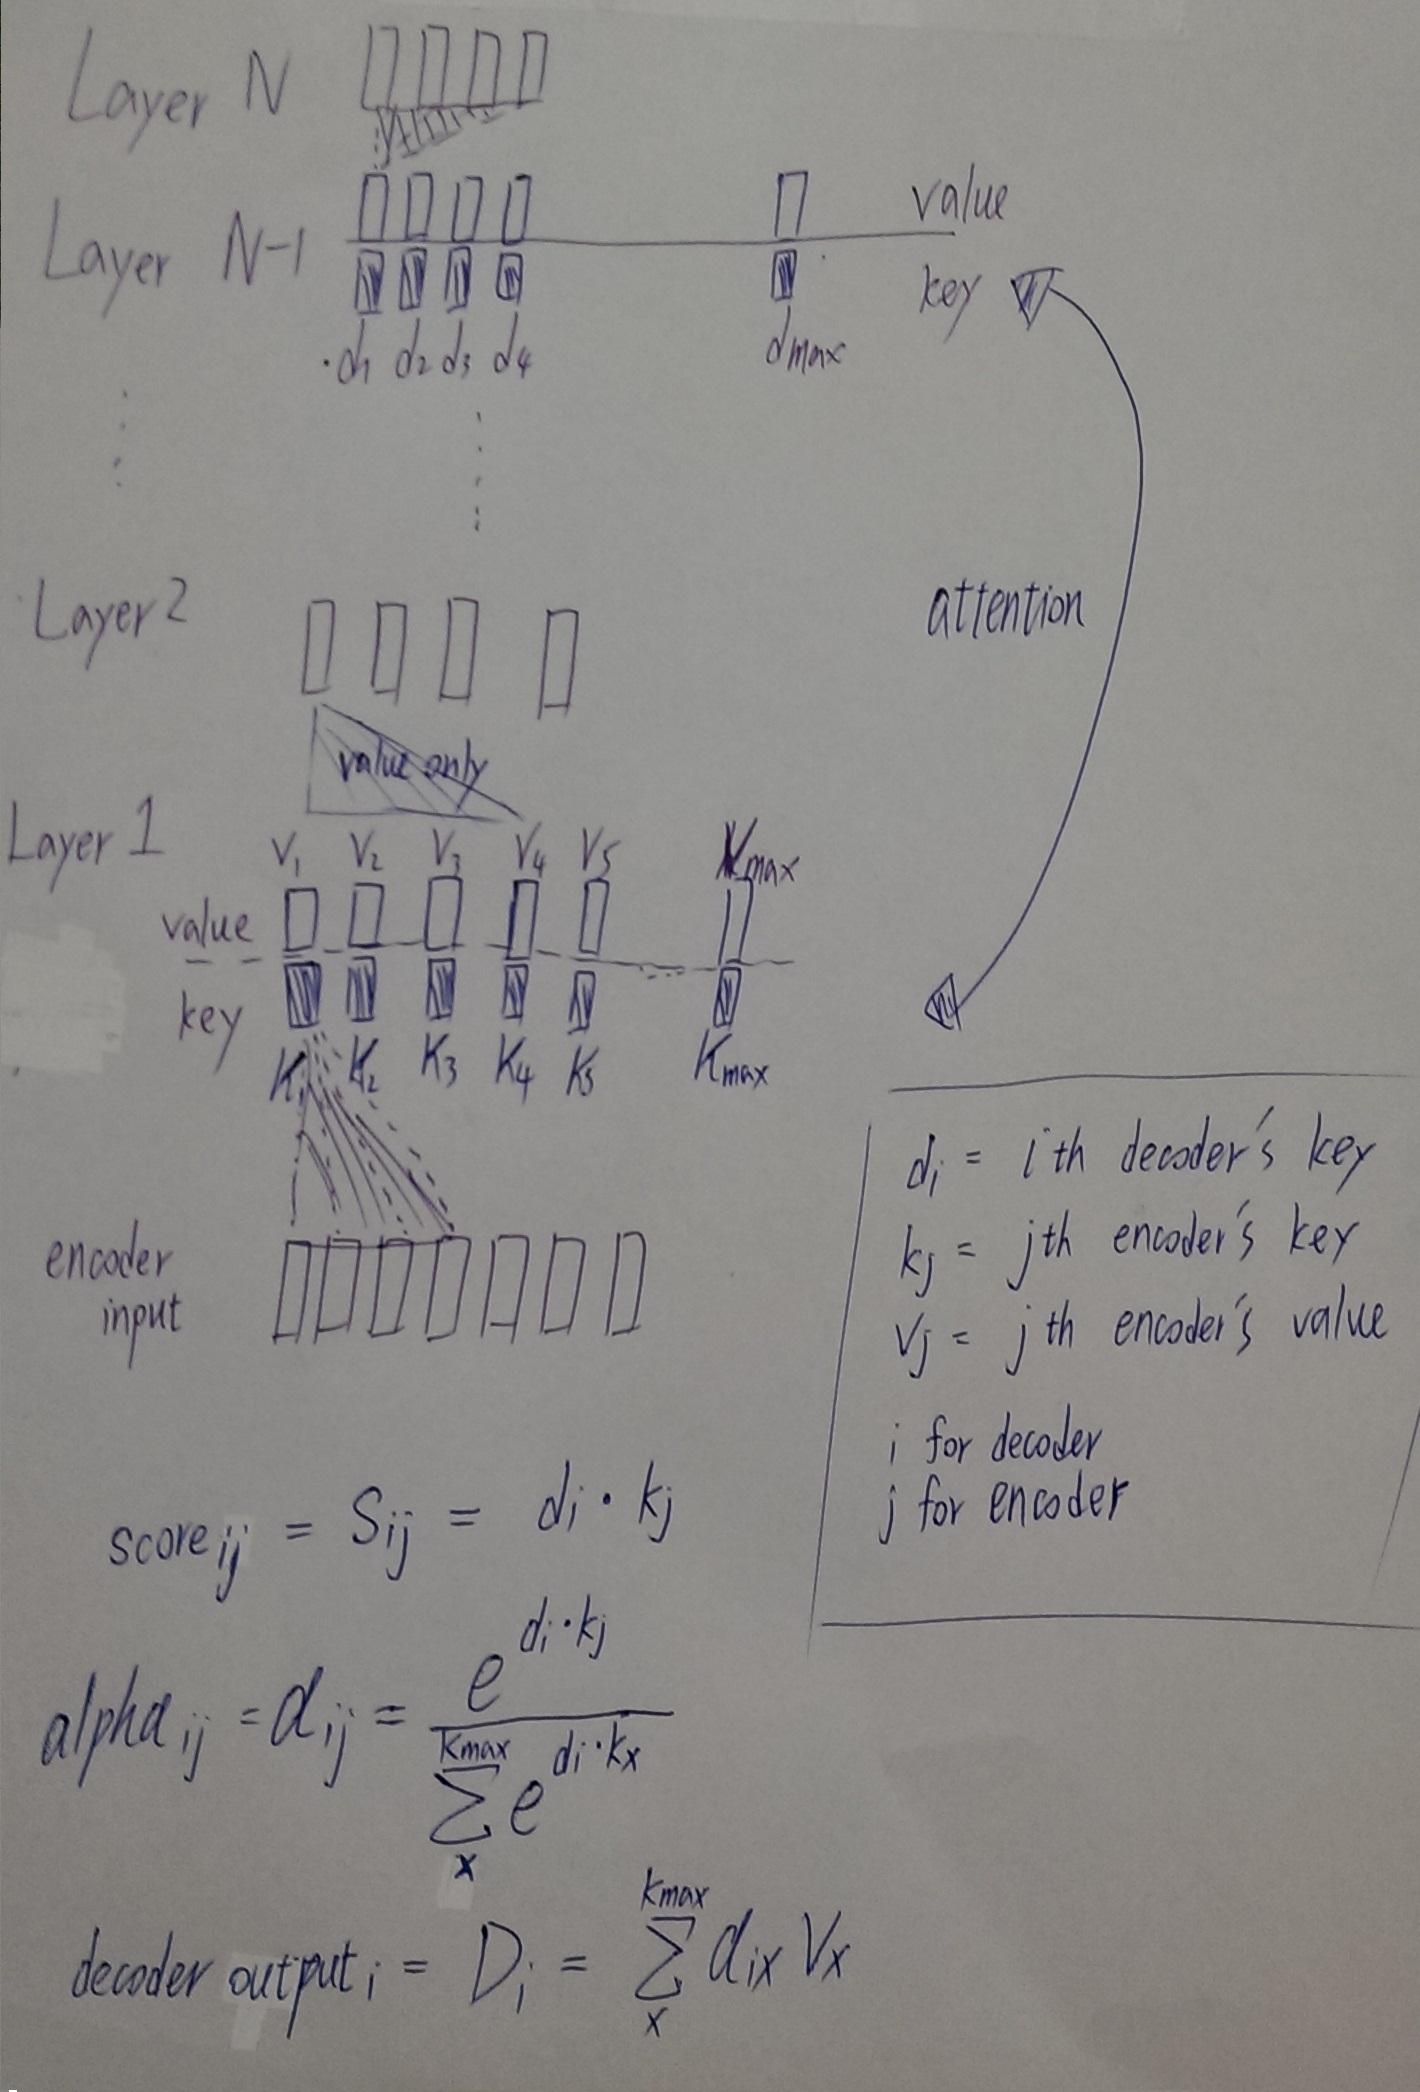 Layer N
Layer N-1
value
key
d1 d2 d3 d4
dmax
Layer 2
attention
value only
Layer 1
V1 V2 V3 V4 V5 Vmax
value
key
K1 K2 K3 K4 K5 Kmax
encoder
input
di = ith decoder's key
kj = jth encoder's key
vj = jth encoder's value
i for decoder
j for encoder
score ij = Sij = di · kj
alpha ij = αij = e^(di·kj) / Σ_x^(kmax) e^(di·kx)
decoder output i = Di = Σ_x^(kmax) αix Vx